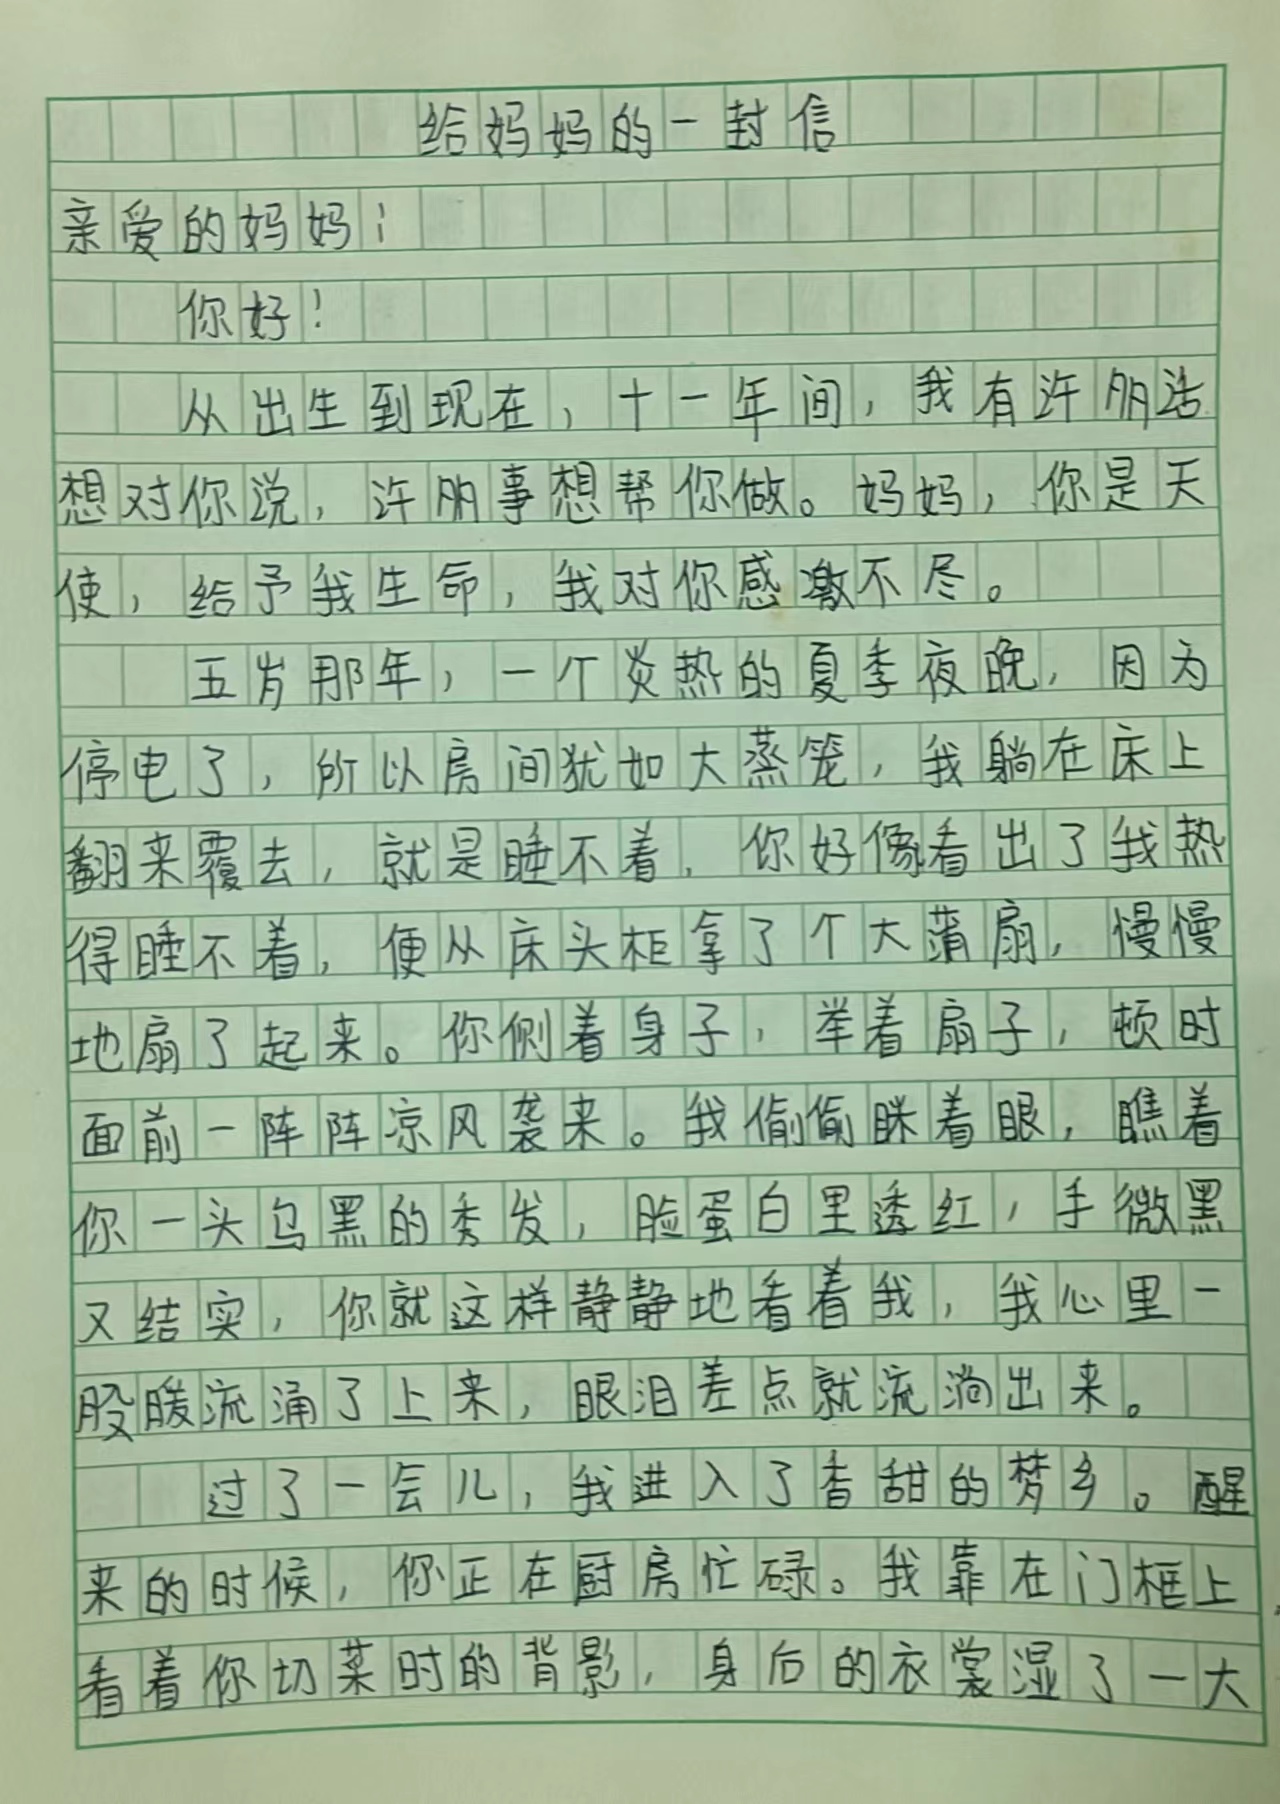 给妈妈的一封信
亲爱的妈妈：
你好！
从出生到现在，十一年间，我有许多话
想对你说，许多事想帮你做。妈妈，你是天
使，给予我生命，我对你感激不尽。
五岁那年，一个炎热的夏季夜晚，因为
停电了，所以房间犹如大蒸笼，我躺在床上
翻来覆去，就是睡不着，你好像看出了我热
得睡不着，便从床头柜拿了个大蒲扇，慢慢
地扇了起来。你侧着身子，举着扇子，顿时
面前一阵阵凉风袭来。我偷偷眯着眼，瞧着
你一头乌黑的秀发，脸蛋白里透红，手微黑
又结实，你就这样静静地看着我，我心里一
股暖流涌了上来，眼泪差点就流淌出来。
过了一会儿，我进入了香甜的梦乡。醒
来的时候，你正在厨房忙碌。我靠在门框上，
看着你切菜时的背影，身后的衣裳湿了一大